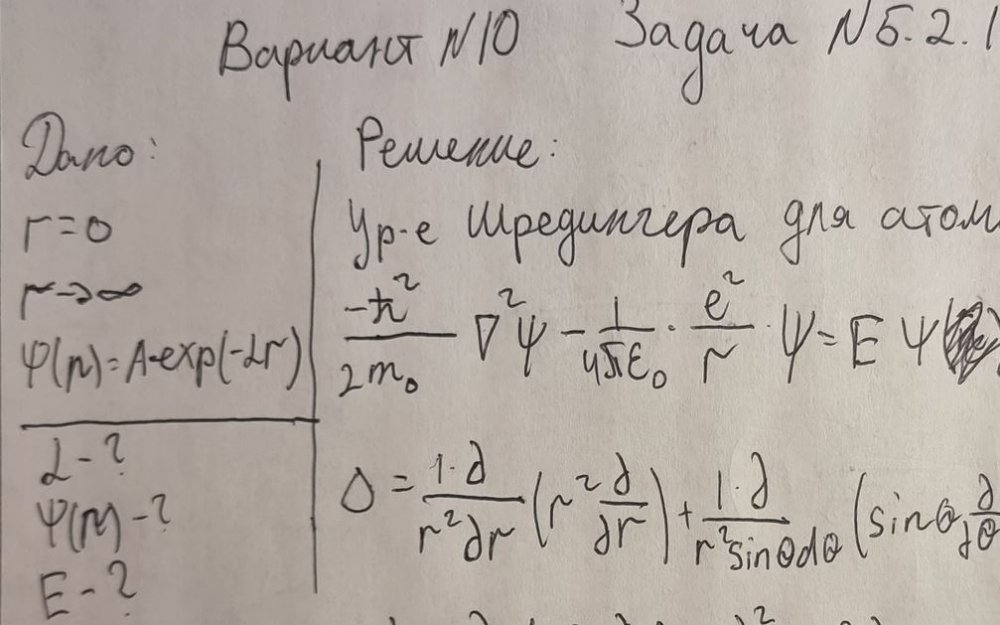 Вариант N10 Задача N5.2.1
Дано:
r=0
r→∞
Ψ(r)=A·exp(-αr)
α-?
Ψ(r)-?
E-?
Решение:
Ур-е Шредингера для атом
-ħ²/2m₀ ∇²Ψ - 1/4πε₀ · e²/r · Ψ = E Ψ
Δ = 1·∂/r²∂r (r² ∂/∂r) + 1·∂/r²sinθdθ (sinθ ∂/∂θ